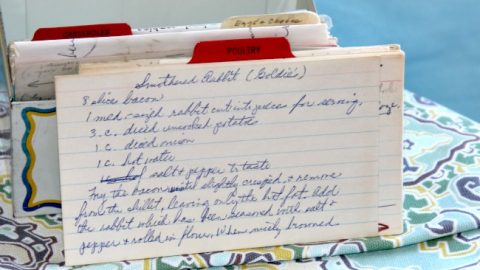 CASSEROLES
POULTRY
Smothered Rabbit (Goldie's)
8 slices bacon
1 med-sized rabbit cut into pieces for serving,
3. c. diced uncooked potatoes
1 c. diced onion
1 c. hot water
salt & pepper to taste
Fry the bacon until slightly crisped & remove
from the skillet, leaving only the hot fat. Add
the rabbit which has been seasoned with salt &
pepper & rolled in flour, When nicely browned